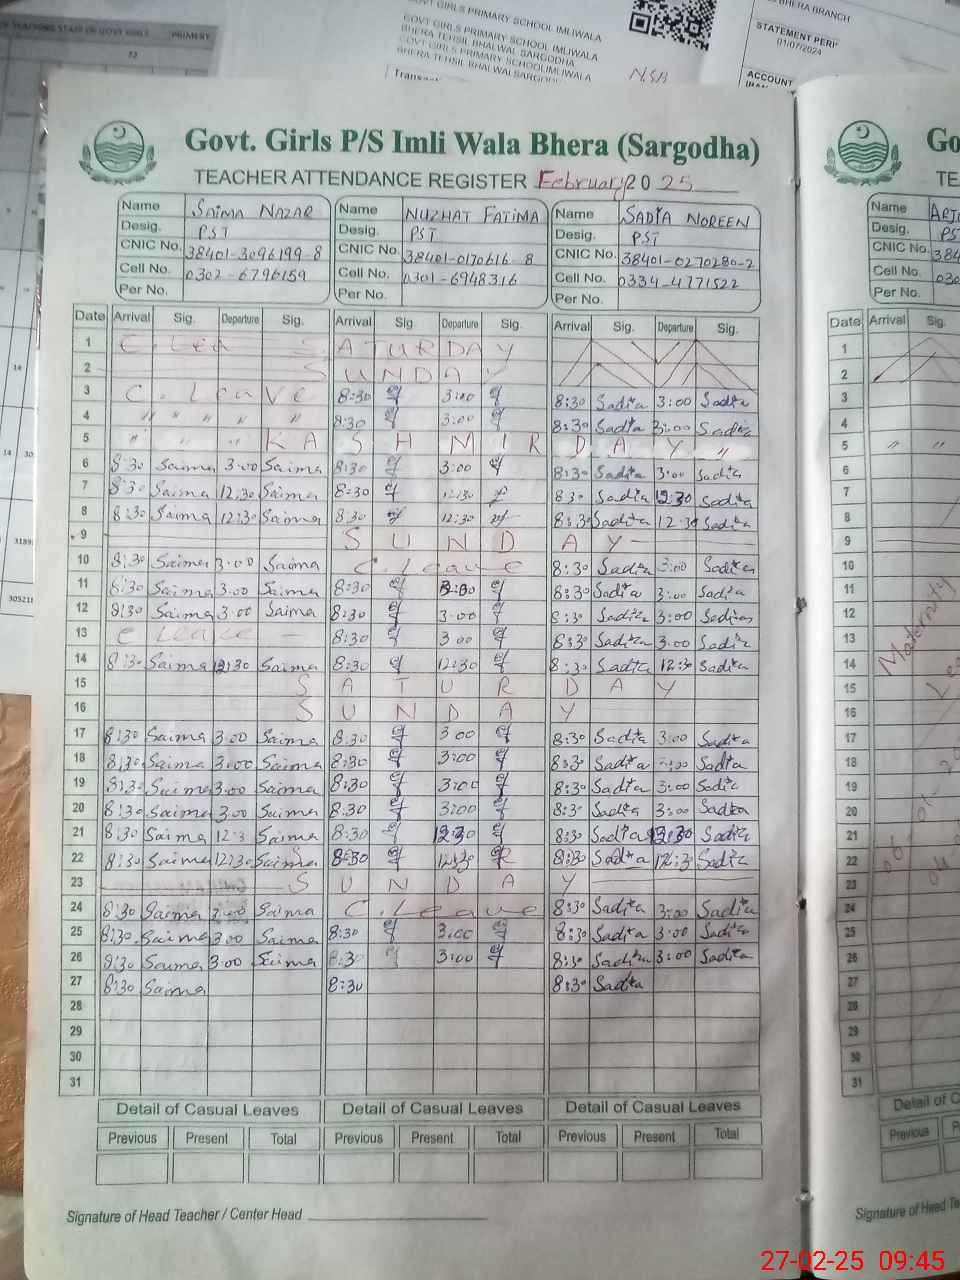 TEACHING STAFF OF GOVT GIRLS PRIMARY
GOVT GIRLS PRIMARY SCHOOL IMLIWALA
BHERA TEHSIL BHALWAL SARGODHA
GOVT GIRLS PRIMARY SCHOOL IMLIWALA
BHERA TEHSIL BHALWAL SARGODHA
BHERA BRANCH
STATEMENT PERI
01/07/2024
ACCOUNT
Govt. Girls P/S Imli Wala Bhera (Sargodha)
TEACHER ATTENDANCE REGISTER February 2025
Name SAIMA NAZAR Name NUZHAT FATIMA Name SADIA NOREEN
Desig. PST Desig. PST Desig. PST
CNIC No. 38401-3096199-8 CNIC No. 38401-0170616-8 CNIC No. 38401-0270280-2
Cell No. 0302-6796159 Cell No. 0301-6948316 Cell No. 0334-4771522
Per No. Per No. Per No.
Date Arrival Sig. Departure Sig. Arrival Sig. Departure Sig. Arrival Sig. Departure Sig.
1 SATURDAY
2 SUNDAY
3 C. Leave 8:30 3:00 8:30 Sadia 3:00 Sadia
4 " " " " 8:30 3:00 8:30 Sadia 3:00 Sadia
5 " " " KASHMIR DAY "
6 8:30 Saima 3:00 Saima 8:30 3:00 8:30 Sadia 3:00 Sadia
7 8:30 Saima 12:30 Saima 8:30 12:30 8:30 Sadia 12:30 Sadia
8 8:30 Saima 12:30 Saima 8:30 12:30 8:30 Sadia 12:30 Sadia
9 SUNDAY
10 8:30 Saima 3:00 Saima C. Leave 8:30 Sadia 3:00 Sadia
11 8:30 Saima 3:00 Saima 8:30 3:00 8:30 Sadia 3:00 Sadia
12 8:30 Saima 3:00 Saima 8:30 3:00 8:30 Sadia 3:00 Sadia
13 C Leave 8:30 3:00 8:30 Sadia 3:00 Sadia
14 8:30 Saima 12:30 Saima 8:30 12:30 8:30 Sadia 12:30 Sadia
15 SATURDAY
16 SUNDAY
17 8:30 Saima 3:00 Saima 8:30 3:00 8:30 Sadia 3:00 Sadia
18 8:30 Saima 3:00 Saima 8:30 3:00 8:30 Sadia 3:00 Sadia
19 8:30 Saima 3:00 Saima 8:30 3:00 8:30 Sadia 3:00 Sadia
20 8:30 Saima 3:00 Saima 8:30 3:00 8:30 Sadia 3:00 Sadia
21 8:30 Saima 12:3 Saima 8:30 12:30 8:30 Sadia 12:30 Sadia
22 8:30 Saima 12:30 Saima 8:30 12:30 8:30 Sadia 12:3 Sadia
23 SUNDAY
24 8:30 Saima 3:00 Saima C. Leave 8:30 Sadia 3:00 Sadia
25 8:30 Saima 3:00 Saima 8:30 3:00 8:30 Sadia 3:00 Sadia
26 8:30 Saima 3:00 Saima 8:30 3:00 8:30 Sadia 3:00 Sadia
27 8:30 Saima 8:30 8:30 Sadia
28
29
30
31
Detail of Casual Leaves Detail of Casual Leaves Detail of Casual Leaves
Previous Present Total Previous Present Total Previous Present Total
Signature of Head Teacher / Center Head
Name
Desig. PST
CNIC No. 384
Cell No. 030
Per No.
Date Arrival Sig.
1
2
3
4
5 " "
6
7
8
9
10
11
12
13
14
15
16
17
18
19
20
21
22
23
24
25
26
27
28
29
30
31
Maternity
Detail of C
Previous
Signature of Head Te
27-02-25 09:45